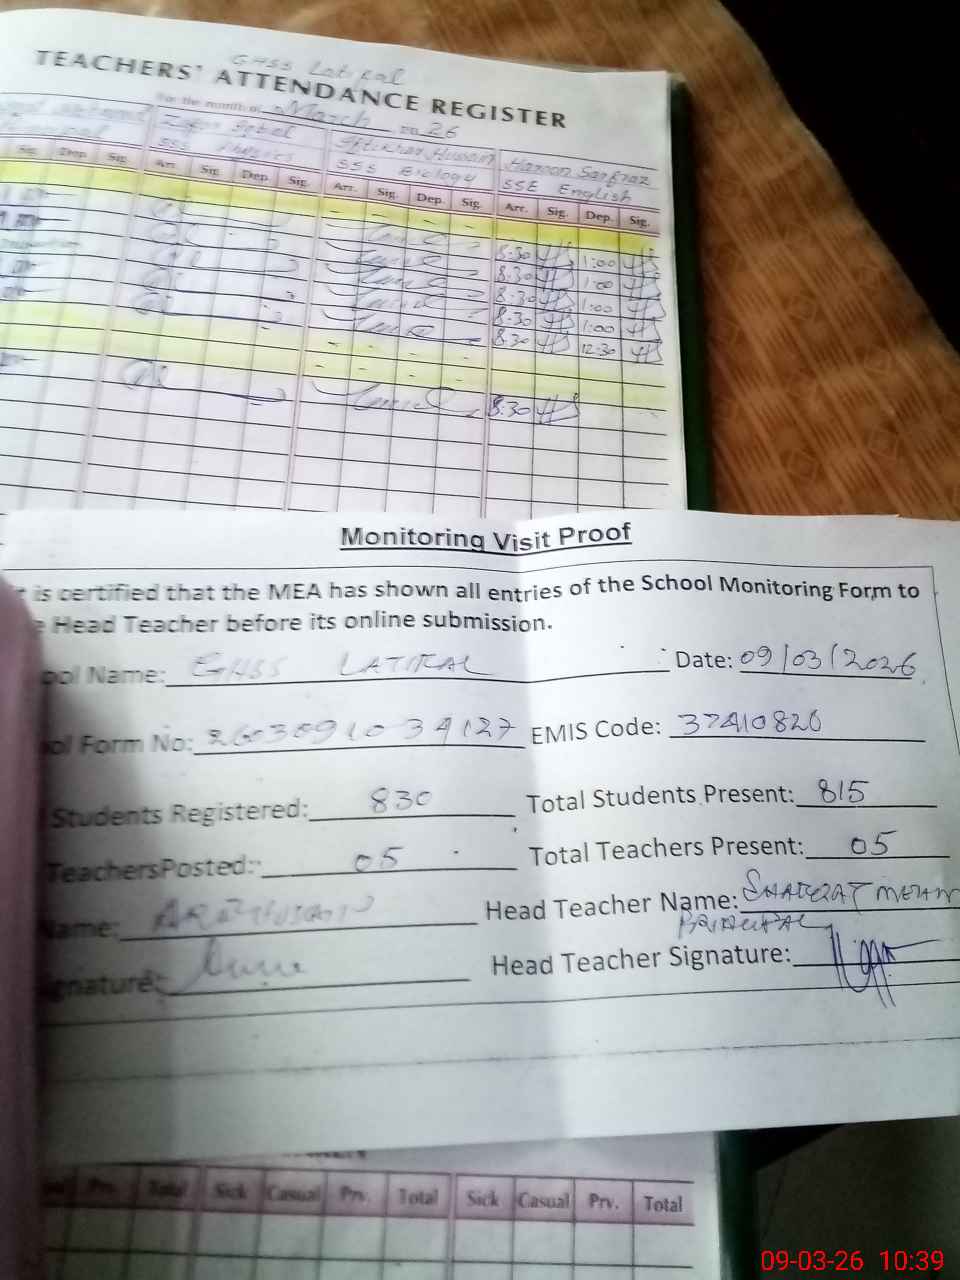 GHSS Latifal
TEACHERS' ATTENDANCE REGISTER
For the month of March 20 26
Zafar Iqbal Iftikhar Hussain Haroon Sarfraz
SSS Physics SSS Biology SSE English
Sig. Dep. Sig. Arr. Sig. Dep. Sig. Arr. Sig. Dep. Sig. Arr. Sig. Dep. Sig.
8:30 1:00
8:30 1:00
8:30 1:00
8:30 1:00
8:30 12:30
8:30
Monitoring Visit Proof
is certified that the MEA has shown all entries of the School Monitoring Form to
Head Teacher before its online submission.
ool Name: GHSS LATIFAL Date: 09/03/2026
ol Form No: EMIS Code: 37410820
Students Registered: 830 Total Students Present: 815
TeachersPosted: 05 Total Teachers Present: 05
Name: Head Teacher Name:
PRINCIPAL
gnature: Head Teacher Signature:
Prv. Total Sick Casual Prv. Total Sick Casual Prv. Total
09-03-26 10:39